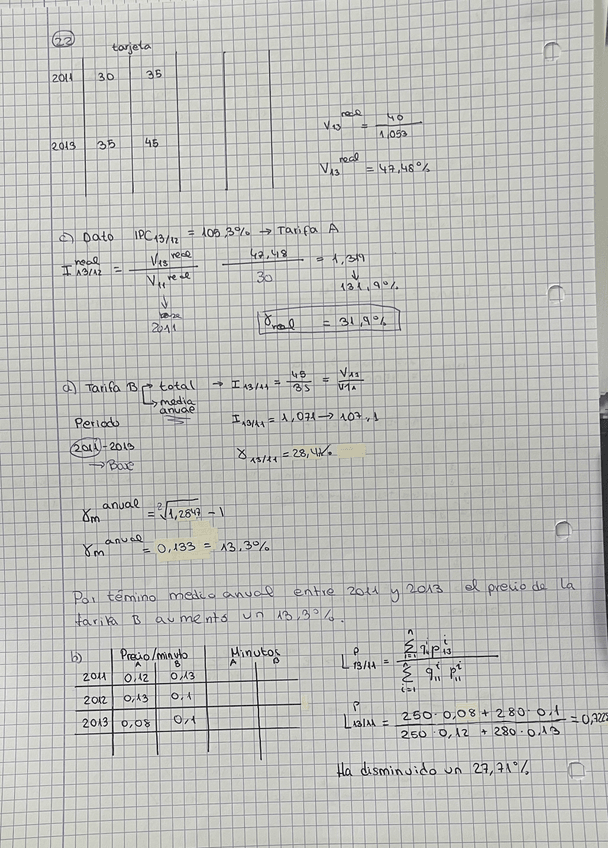 22
tarjeta
2011 30 35
2013 35 45
V13 real = 40 / 1,053
V13 real = 47,48%
c) Dato IPC 13/12 = 105,3% → Tarifa A
I real 13/12 = V13 real / V11 real 47,48 / 30 = 1,319
↓
131,9%
↓
base
2011
γ real = 31,9%
a) Tarifa B → total → I 13/11 = 45 / 35 = V13 / V11
→ media anual
Periodo
I 13/11 = 1,071 → 107,1
2011-2013
→ Base
γ 13/11 = 28,47%
γm anual = ²√1,2847 - 1
γm anual = 0,133 = 13,3%
Por témino medio anual entre 2011 y 2013 el precio de la
tarifa B aumentó un 13,3%.
b) Precio/minuto Minutos
A B A B
2011 0,12 0,13
2012 0,13 0,1
2013 0,08 0,1
L P 13/11 = n Σ i=1 qi p i 13 / n Σ i=1 q i 11 p i 11
L P 13/11 = 250·0,08 + 280·0,1 / 250·0,12 + 280·0,13 = 0,7228
Ha disminuido un 27,71%